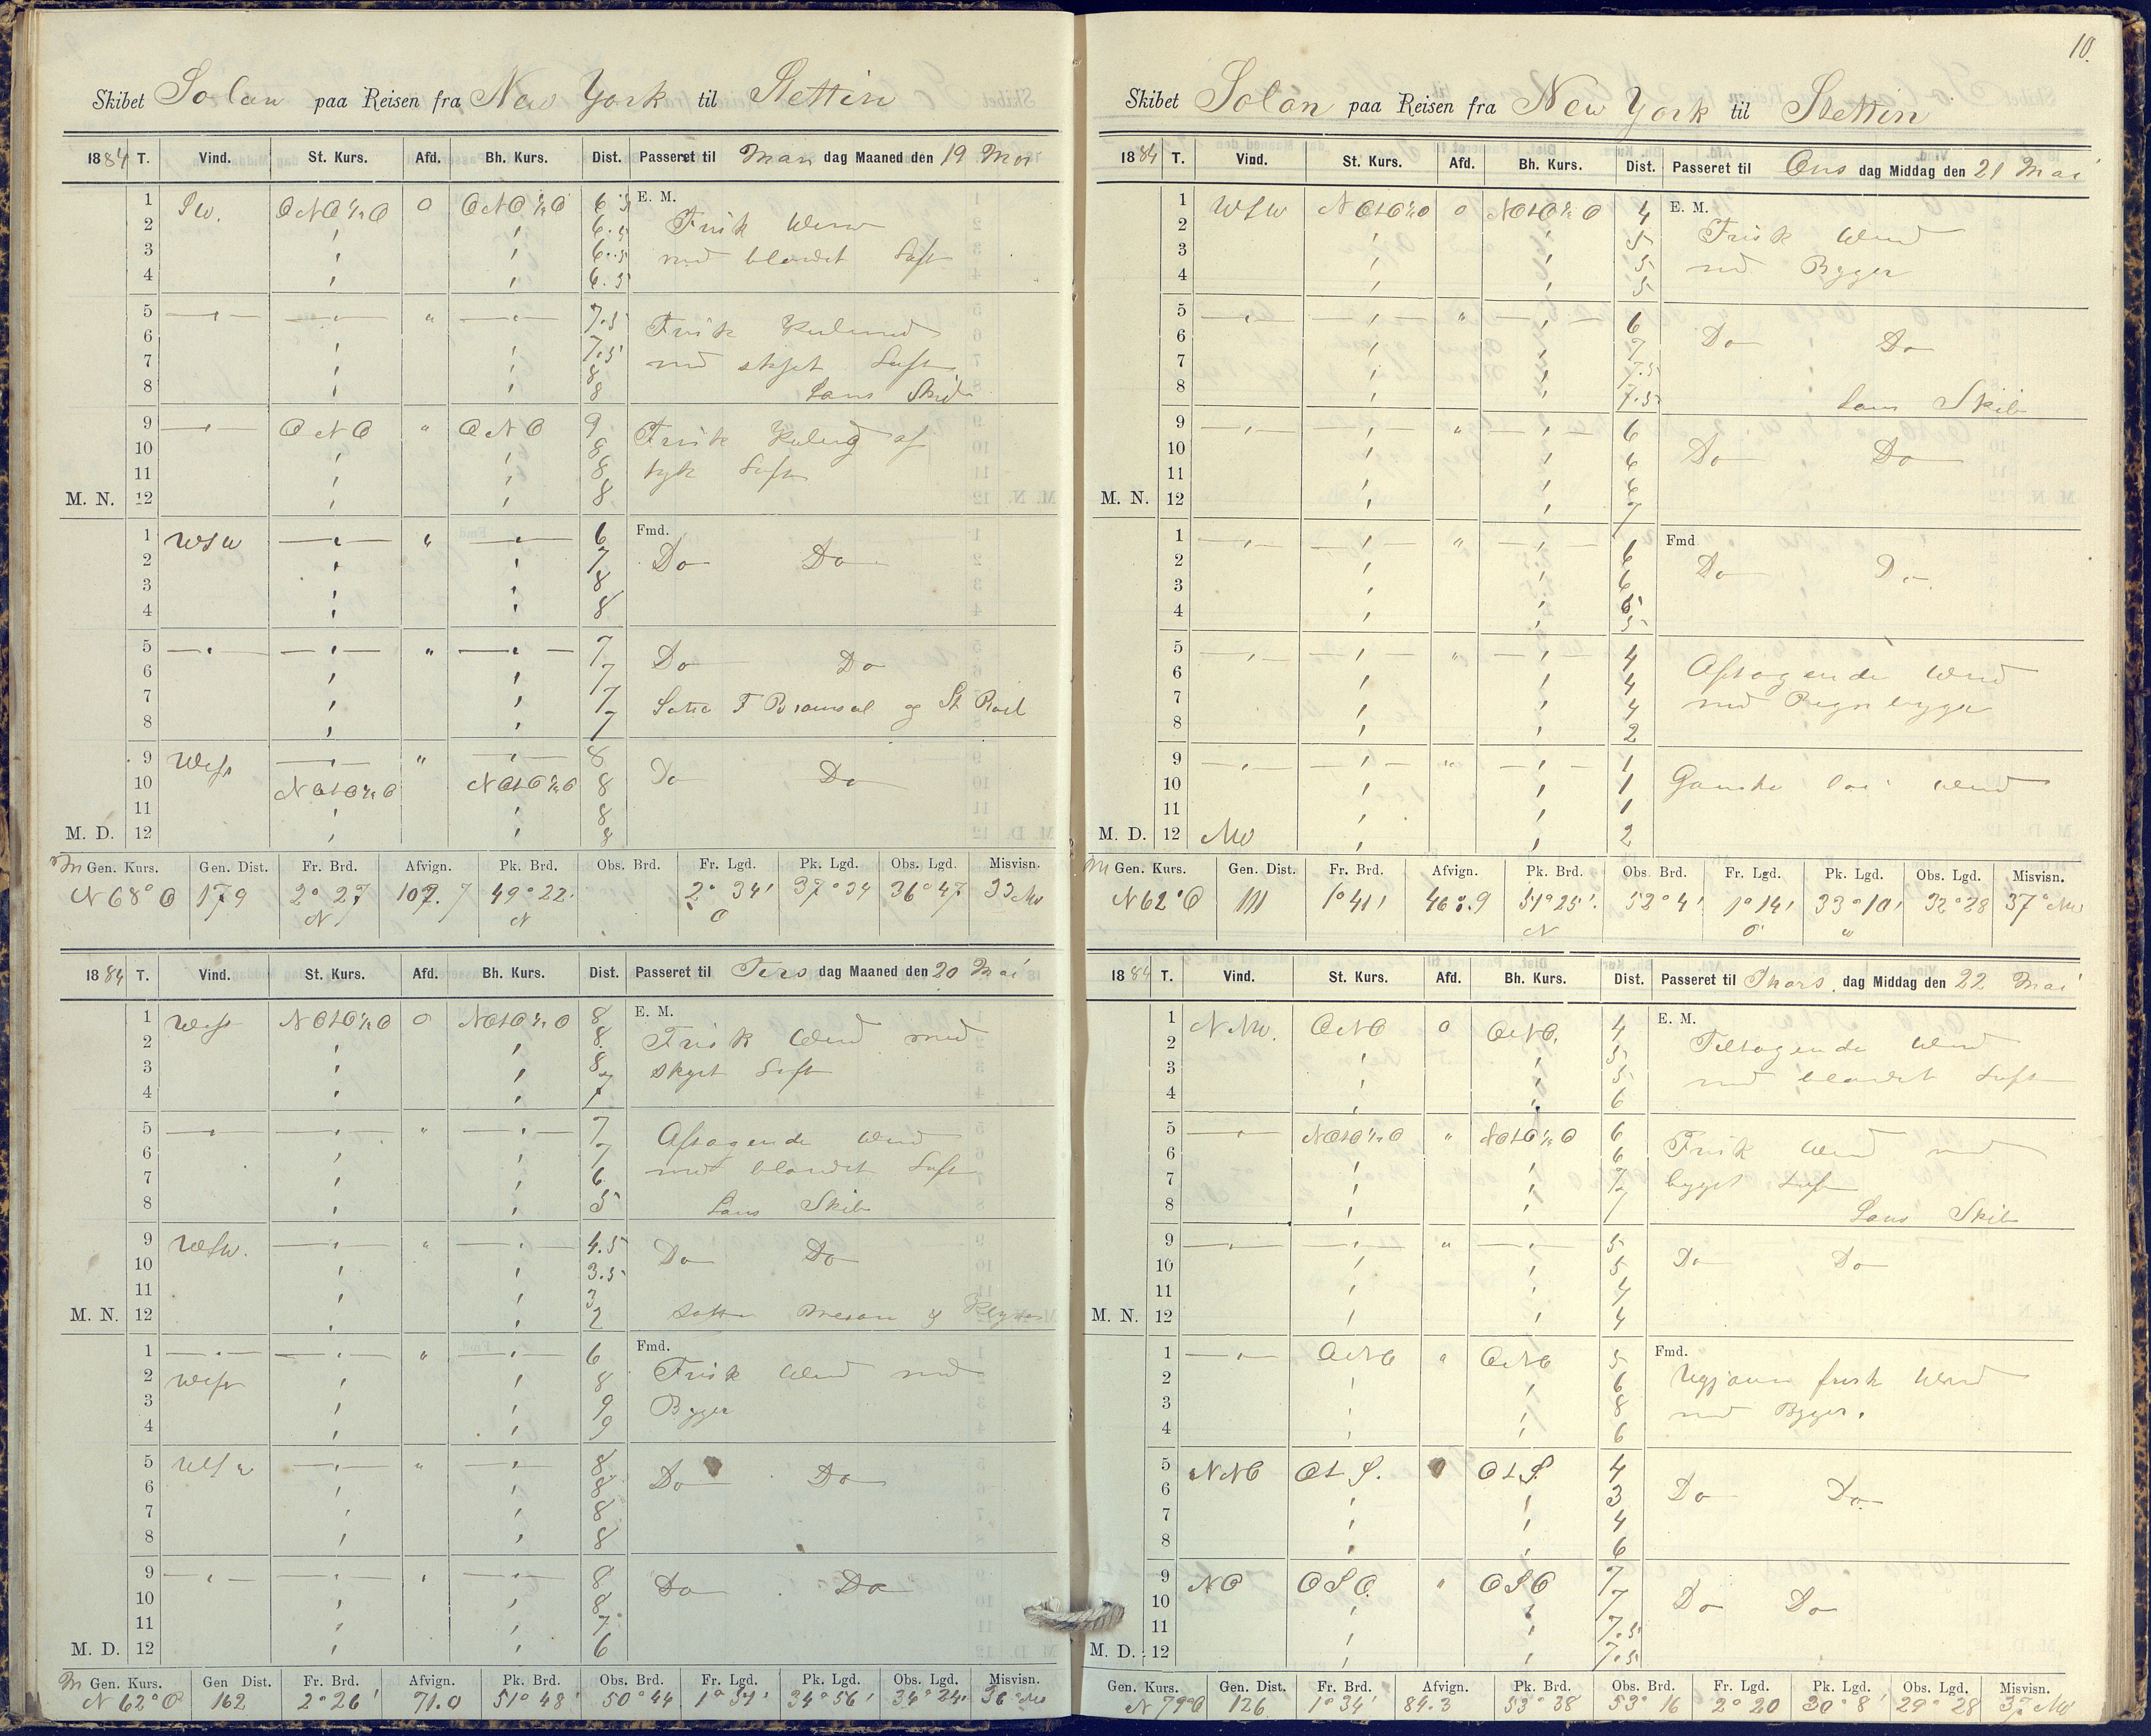 10.
Skibet Solan paa Reisen fra New York til Stettin
1884 T. Vind. St. Kurs. Afd. Bh. Kurs. Dist. Passeret til Man dag Maaned den 19 Mai
1 SW. ONO½O 0 ONO½O 6.5 E. M.
2 " " 6.5 Frisk Wind
3 " " 6.5 med blandet Luft
4 " " 6.5
5 — " — — " — " — " — 7.5 Frisk Kuling
6 " " 7.5
7 " " 8 med skyet Luft
8 " " 8 Lans Skib
9 — " — ONO " ONO 9 Frisk Kuling af
10 " " 8
11 " " 8 tyk Luft
M. N. 12 " " 8
1 WSW — " — " — " — 6 Fmd.
2 " " 7 Do Do
3 " " 8
4 " " 8
5 — " — — " — " — " — 7
6 " " 7 Do Do
7 " " 7 Satte F Bramseil og St Røil
8 " " 7
9 West — " — " — " — 8
10 NOtO½O NOtO½O 8 Do Do
11 " " 8
M. D. 12 " " 8
M Gen. Kurs. Gen. Dist. Fr. Brd. Afvign. Pk. Brd. Obs. Brd. Fr. Lgd. Pk. Lgd. Obs. Lgd. Misvisn.
N 68° O 179 2° 27 107.7 49° 22' 2° 34' 37° 34 36° 47 33 NW
N N O
1884 T. Vind. St. Kurs. Afd. Bh. Kurs. Dist. Passeret til Tirs dag Maaned den 20 Mai
1 West NOtO½O 0 NOtO½O 8 E. M.
2 " " 8 Frisk Wind med
3 " " 8 skyet Luft
4 " " 7
5 — " — — " — " — " — 7 Aftagende Wind
6 " " 7
7 " " 6 med blandet Luft
8 " " 5 Lans Skib
9 WSW. — " — " — " — 4.5
10 " " 3.5 Do Do
11 " " 3
M. N. 12 " " 2 Mesan og
1 — " — — " — " — " — 6 Fmd.
2 West " " 8 Frisk Wind med
3 " " 9 Byger
4 " " 9
5 WSW — " — " — " — 8
6 " " 8 Do Do
7 " " 8
8 " " 8
9 — " — — " — " — " — 8
10 " " 8 Do Do
11 " " 7
M. D. 12 " " 6
M Gen. Kurs. Gen Dist. Fr. Brd. Afvign. Pk. Brd. Obs. Brd. Fr. Lgd. Pk. Lgd. Obs. Lgd. Misvisn.
N 62° O 162 2° 26' 71.0 51° 48' 50° 44 1° 51' 34° 56' 34° 24' 36° NW
Skibet Solan paa Reisen fra New York til Stettin
1884 T. Vind. St. Kurs. Afd. Bh. Kurs. Dist. Passeret til Ons dag Middag den 21 Mai
1 WSW NOtO½O 0 NOtO½O 4 E. M.
2 " " 5 Frisk Wind
3 " " 5 med Byger
4 " " 5
5 — " — — " — " — " — 6
6 " " 7 Do Do
7 " " 7.5
8 " " 7.5 Lans Skib
9 — " — — " — " — " — 6
10 " " 6 Do Do
11 " " 6
M. N. 12 " " 7
1 — " — — " — " — " — 6 Fmd
2 " " 6 Do Do
3 " " 6
4 " " 5
5 — " — — " — " — " — 4 Aftagende Wind
6 " " 4
7 " " 4 med Regnbyger
8 " " 2
9 — " — — " — " — " — 1
10 " " 1 Ganske løi Wind
11 " " 1
M. D. 12 NW " " 2
M Gen. Kurs. Gen. Dist. Fr. Brd. Afvign. Pk. Brd. Obs. Brd. Fr. Lgd. Pk. Lgd. Obs. Lgd. Misvisn.
N 62° O 111 1° 41' 46.9 51° 25'. 52° 4' 1° 14' 33° 10' 32° 28 37° NW
N O "
1884 T. Vind. St. Kurs. Afd. Bh. Kurs. Dist. Passeret til Thors. dag Middag den 22 Mai
1 NNW. ONO 0 ONO. 4 E. M.
2 " " 5 Tiltagende Wind
3 " " 5 med blandet Luft
4 " " 6
5 — " — NOtO½O " NOtO½O 6 Frisk Wind med
6 " " 6
7 " " 7 bygget Luft
8 " " 7 Lans Skib
9 — " — — " — " — " — 5
10 " " 5 Do Do
11 " " 4
M. N. 12 " " 4
1 — " — ONO " ONO 5 Fmd.
2 " " 6 Ugjævn frisk Wind
3 " " 8 med Byger.
4 " " 6
5 NNO OtS. 0 OtS. 4
6 " " 3 Do Do
7 " " 4
8 " " 6
9 NO OSO. " OSO 7
10 " " 7 Do Do
11 " " 7.5
M. D. 12 " " 7.5
Gen. Kurs. Gen. Dist. Fr. Brd. Afvign. Pk. Brd. Obs. Brd. Fr. Lgd. Pk. Lgd. Obs. Lgd. Misvisn.
N 79° O 126 1° 34' 84.3 53° 38 53° 16 2° 20 30° 8' 29° 28 37 NW